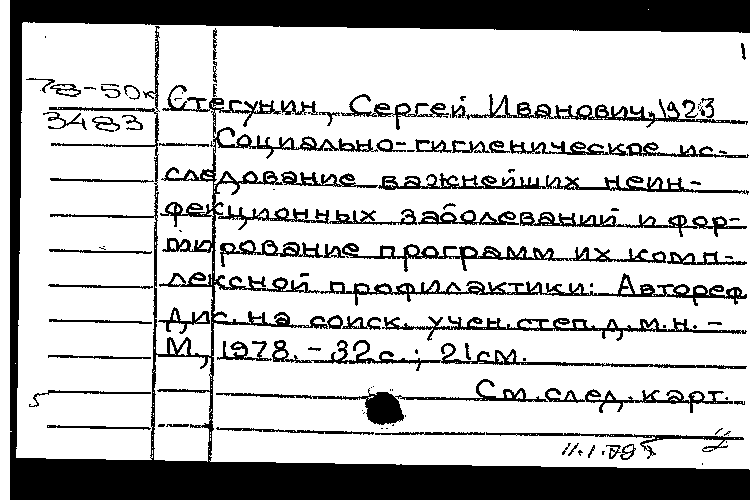 1
78-50к Стегунин, Сергей Иванович, 1923
3483 Социально-гигиеническое ис-
следование важнейших неин-
фекционных заболеваний и фор-
мирование программ их комп-
лексной профилактики: Автореф
дис. на соиск. учен. степ. д. м. н. –
М., 1978. – 32 с.; 21 см.
См. след. карт.
5
11.1.79